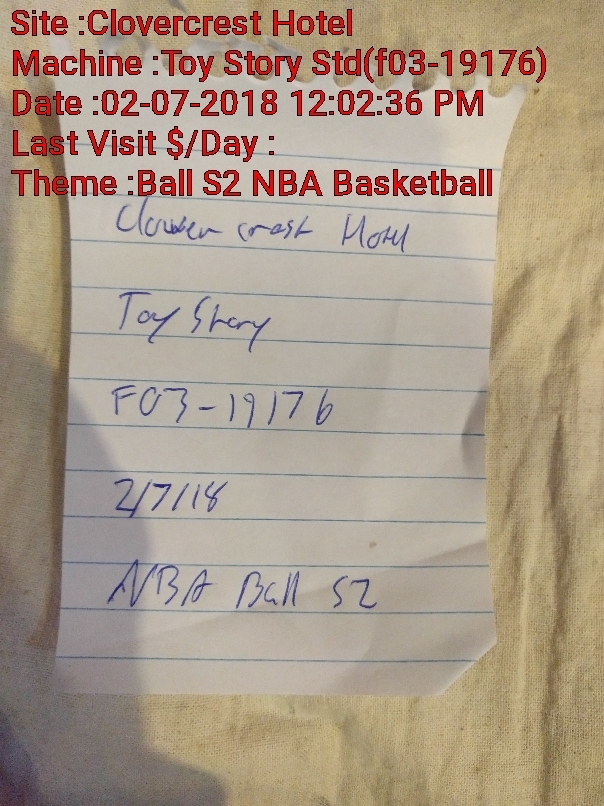 Site :Clovercrest Hotel
Machine :Toy Story Std(f03-19176)
Date :02-07-2018 12:02:36 PM
Last Visit $/Day :
Theme :Ball S2 NBA Basketball
Clover crest Hotel
Toy Story
F03-19176
2/7/18
NBA Ball S2